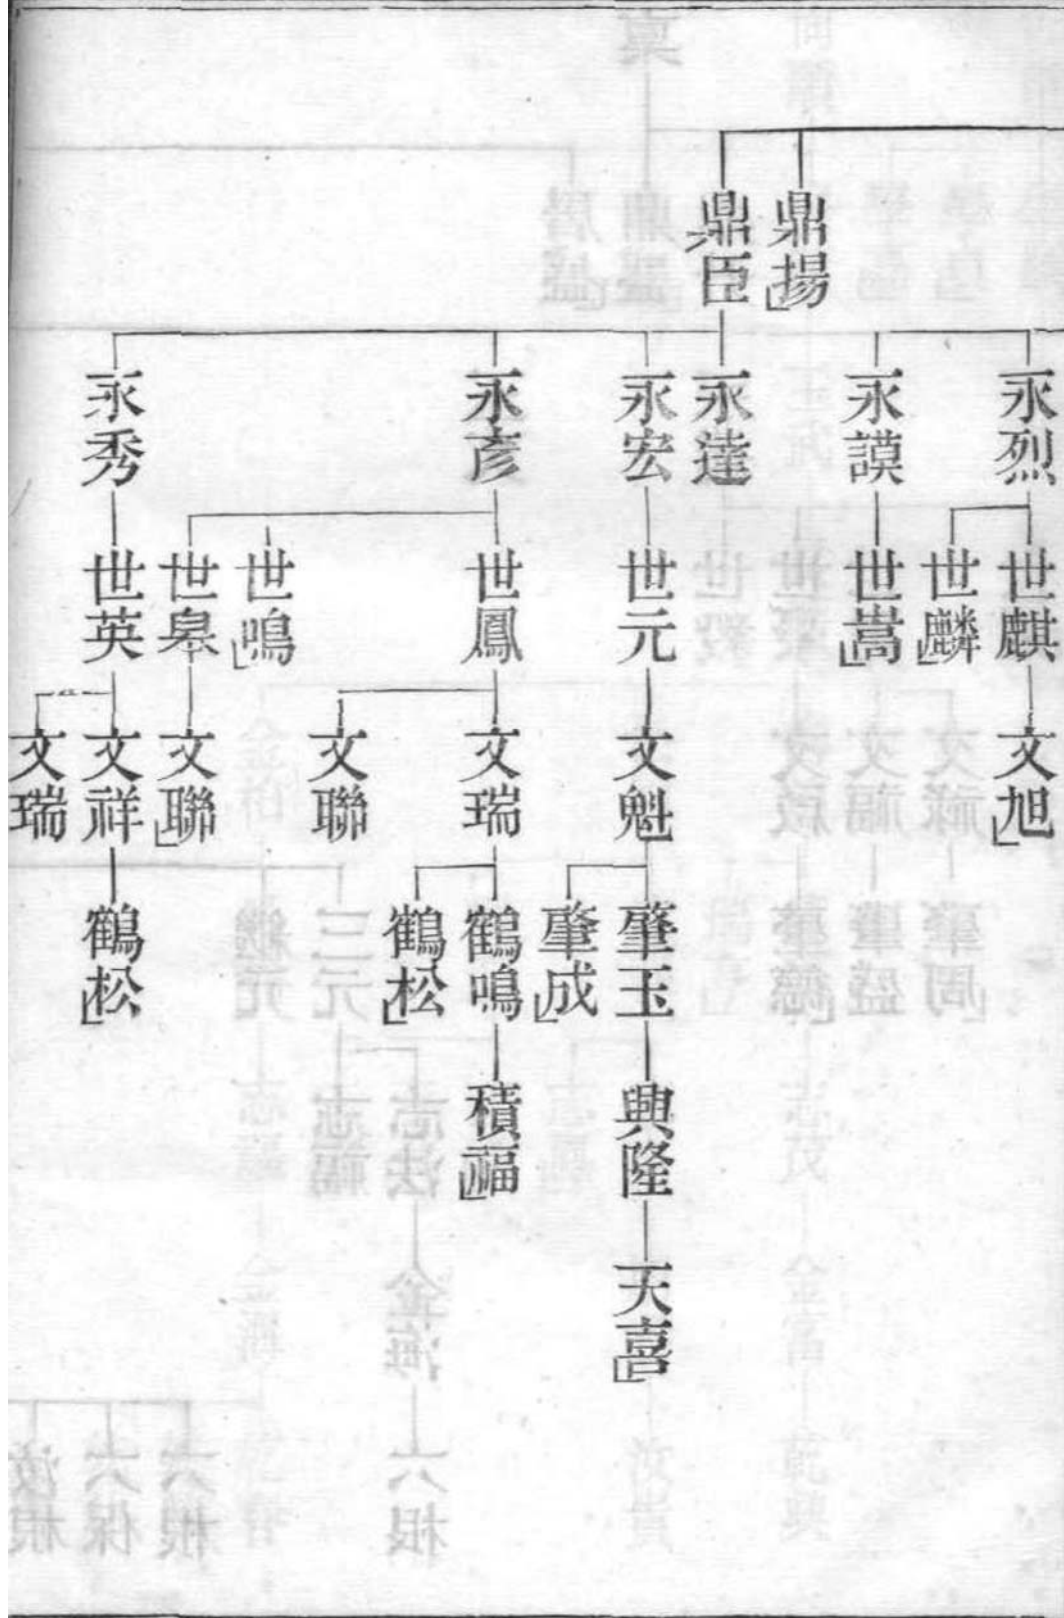 鼎揚
鼎臣
永烈
永謨
永達
永宏
永彥
永秀
世麒
世麟
世嵩
世元
世鳳
世鳴
世皋
世英
文旭
文魁
文瑞
文聯
文聯
文祥
文瑞
肇玉
肇成
鶴鳴
鶴松
鶴松
興隆
積福
天喜